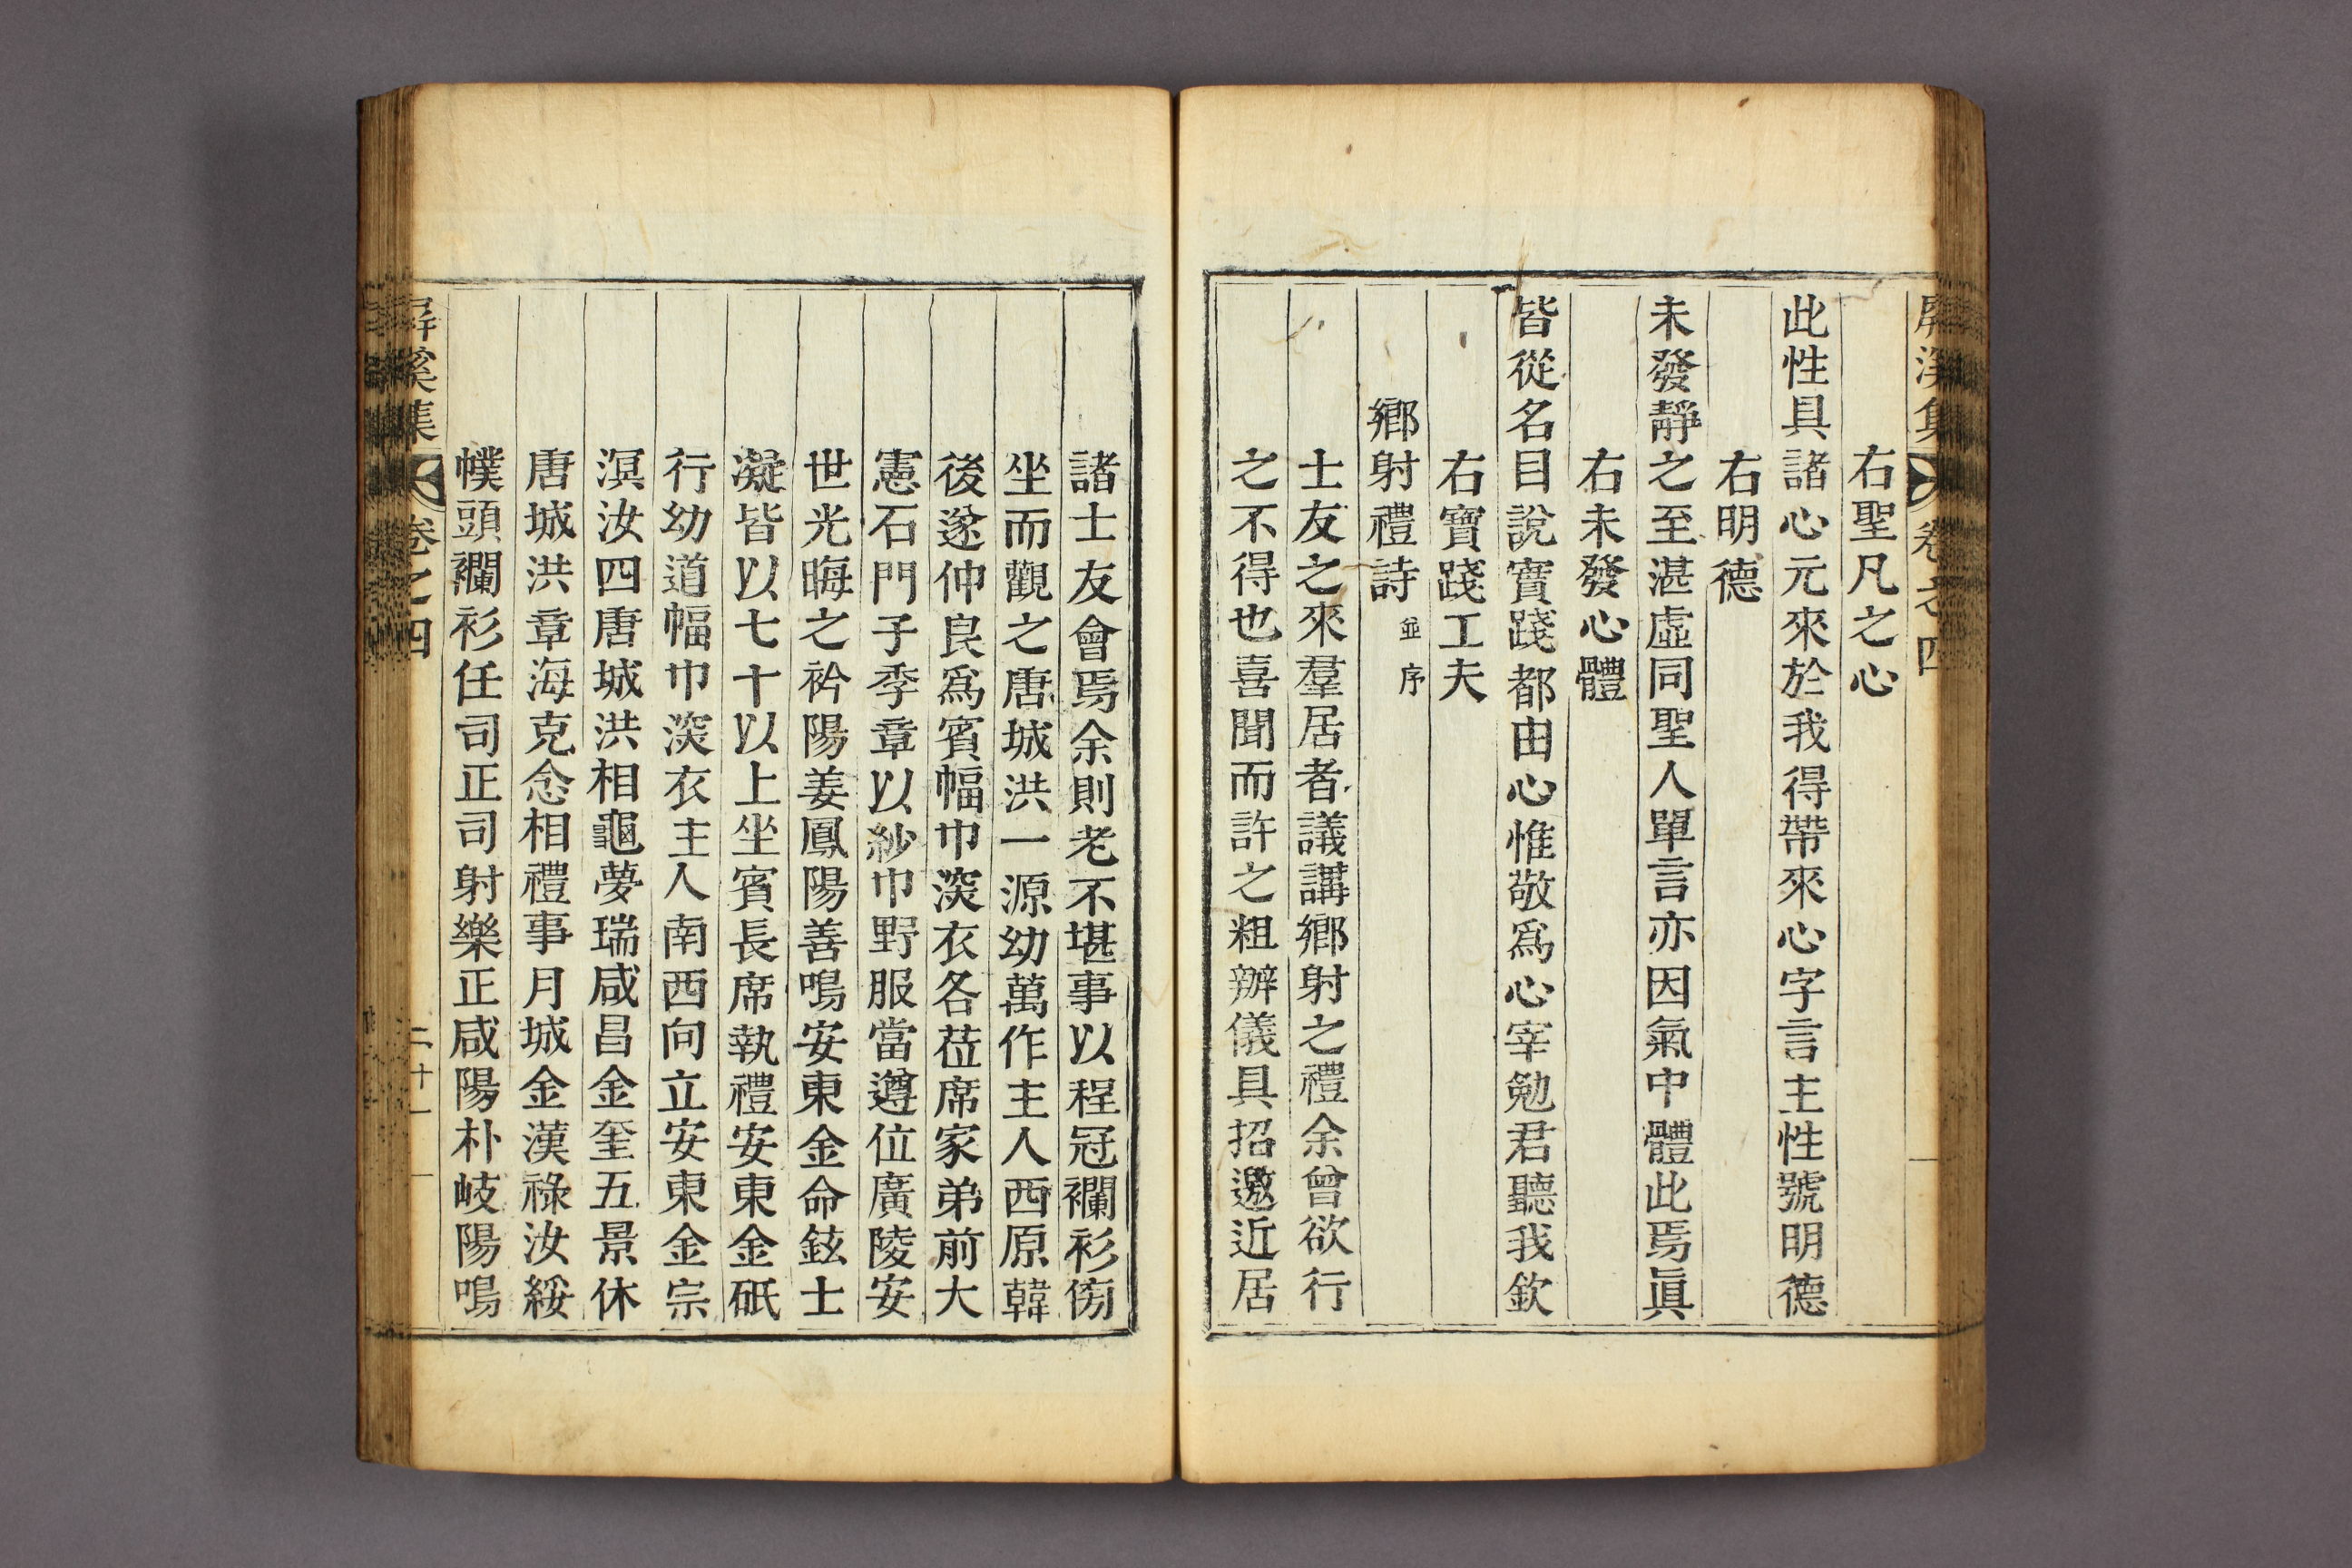 屏溪集 卷之四
右聖凡之心
此性具諸心元來於我得帶來心字言主性號明德
右明德
未發靜之至湛虛同聖人單言亦因氣中體此焉眞
右未發心體
皆從名目說實踐都由心惟敬爲心宰勉君聽我欽
右實踐工夫
鄉射禮詩 並序
士友之來羣居者議講鄉射之禮余曾欲行
之不得也喜聞而許之粗辦儀具招邀近居
諸士友會焉余則老不堪事以程冠襴衫傍
坐而觀之唐城洪一源幼萬作主人西原韓
後遂仲良爲賓幅巾深衣各莅席家弟前大
憲石門子季章以紗巾野服當遵位廣陵安
世光晦之衿陽姜鳳陽善鳴安東金命鉉士
凝皆以七十以上坐賓長席執禮安東金砥
行幼道幅巾深衣主人南西向立安東金宗
溟汝四唐城洪相龜夢瑞咸昌金奎五景休
唐城洪章海克念相禮事月城金漢祿汝綏
幞頭襴衫任司正司射樂正咸陽朴岐陽鳴
屏溪集 卷之四 二十一